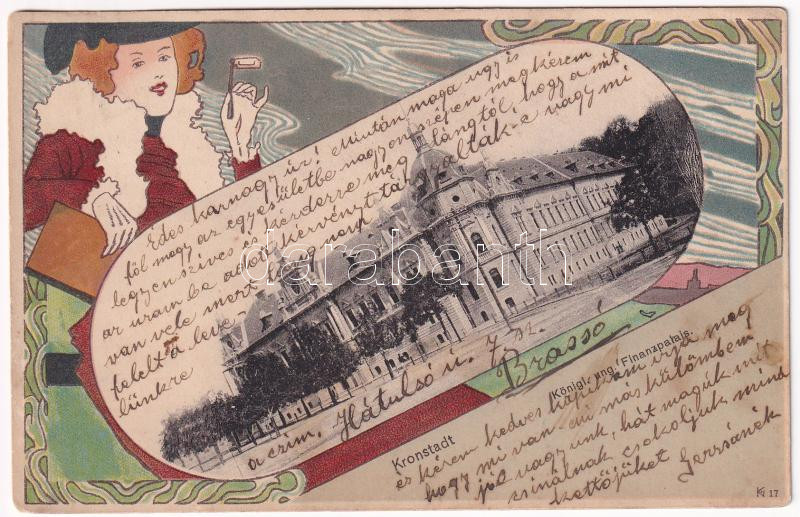 Édes karnagy úr! Miután maga úgy is
föl megy az egyesületbe nagyon szépen megkérem
legyen szíves és kérdezze meg Lángtól, hogy a mit
az uram be adott kérvényt tárgyalták-e vagy mi
van vele mert még nem
felelt a leve-
lünkre
a czím. Hátulsó u. 7 sz.
Brassó
Kronstadt
Königl. ung. Finanzpalais.
és kérem kedves írja meg
hogy mi van mi más külömbem
jól vagyunk, hát maguk mit
csinálnak csokoljuk mind
kettőjüket
darabanth
17